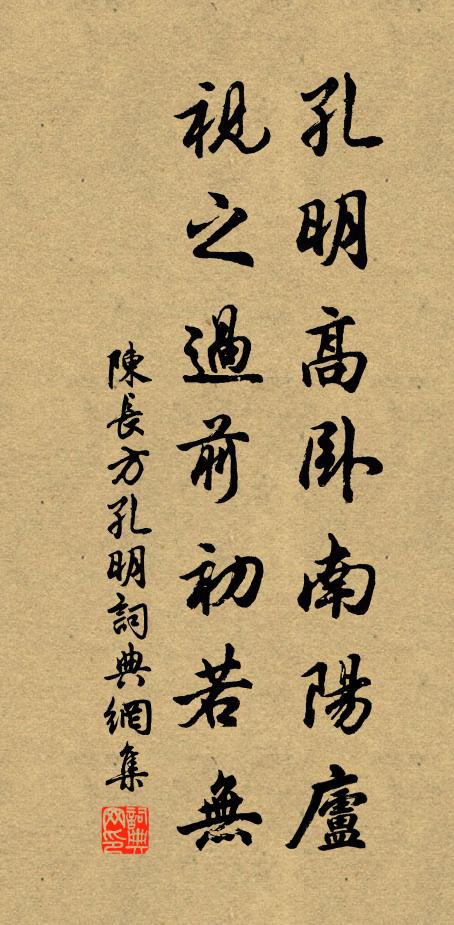 孔明高卧南陽廬
視之過前初若無
陳長方孔明詞典網集
詞典网印